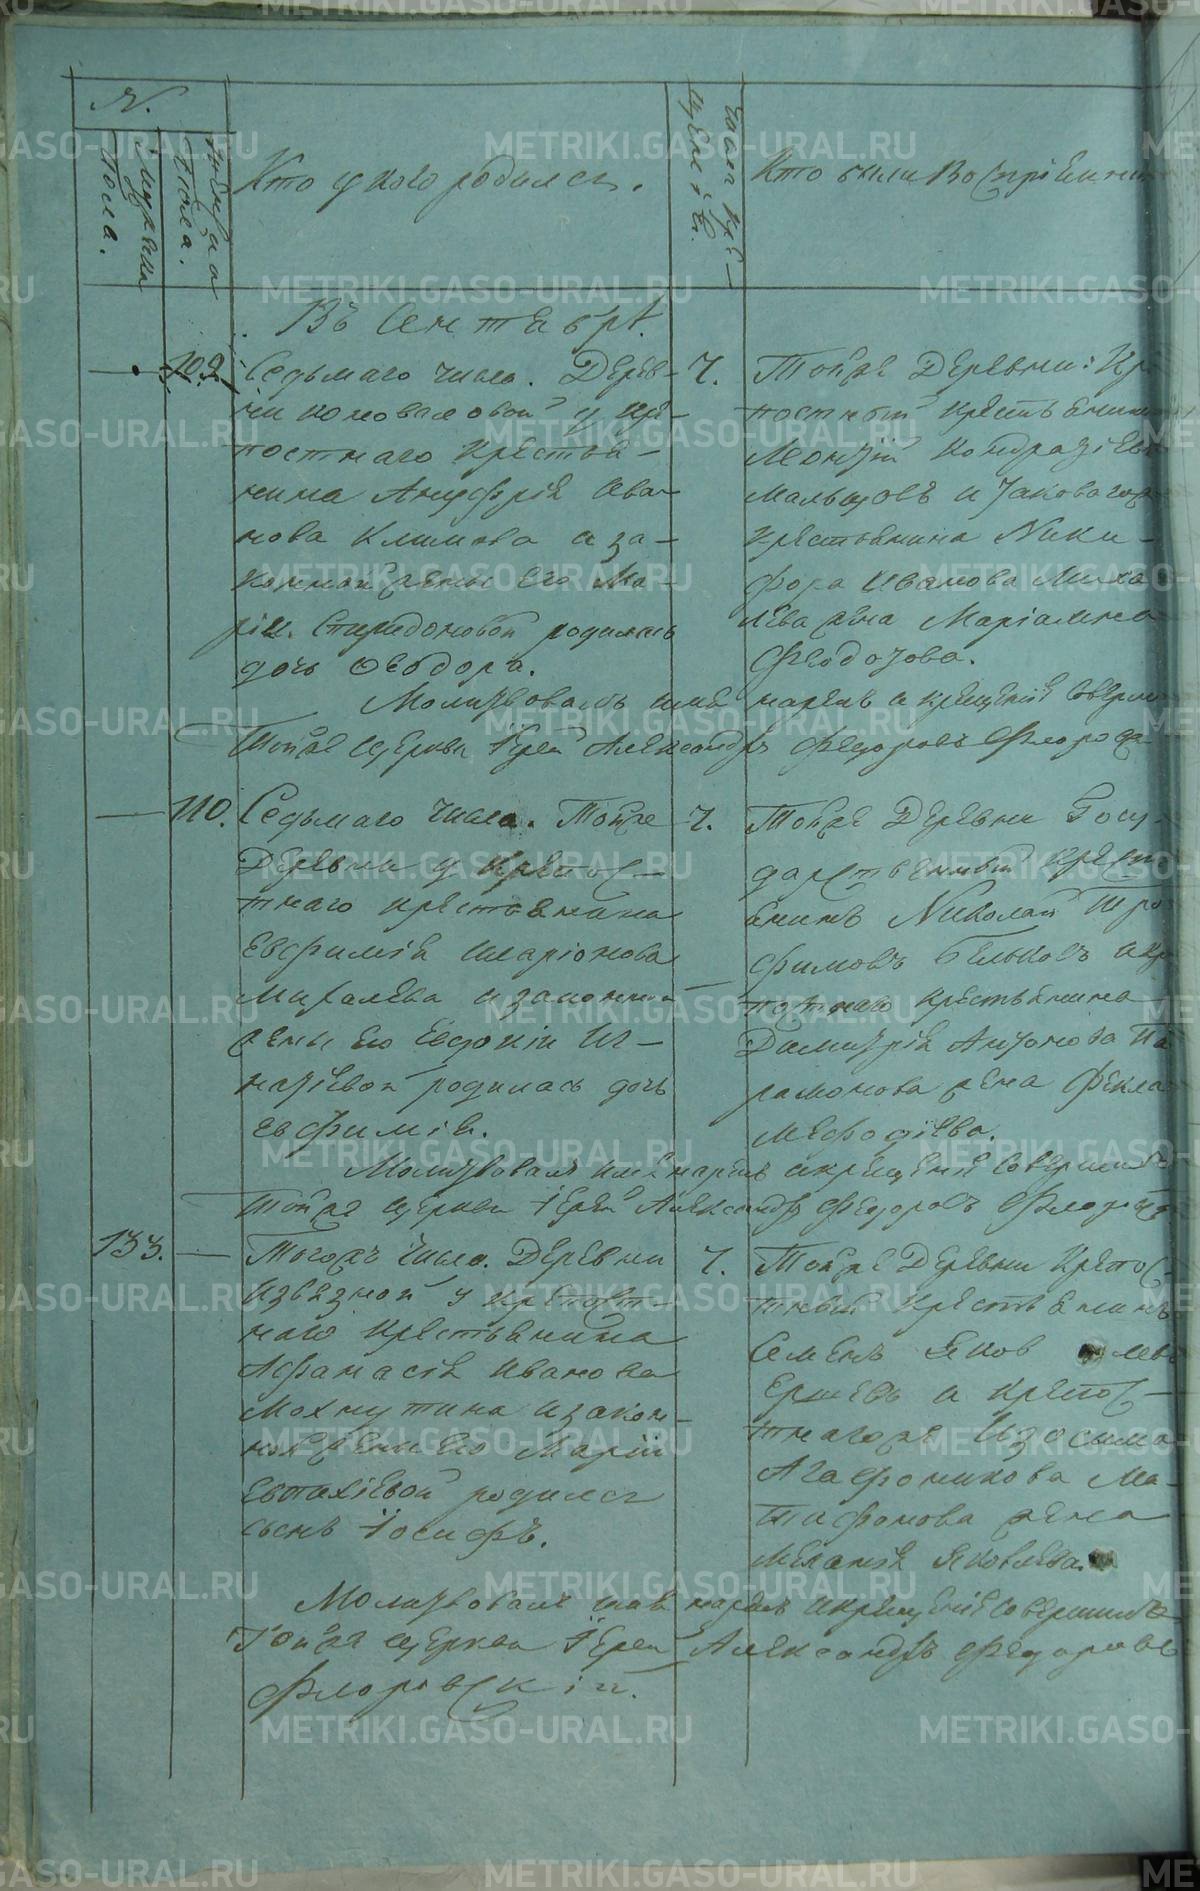 N.
мужеска
пола.
женска
пола.
Кто у кого родился.
число кре-
щенія.
Кто были Воспріемни
Въ Сентябрѣ.
109. Седьмаго Число. Дерев-
ни Коноваловой у кре-
постнаго Крестья-
нина Ануфрія Ива-
нова Климова и за-
конной жены его Ма-
ріи Спиридоновой родилась
дочь Ѳеодора.
7.
Тойже Деревни: Кр
постный крестьянин
Леонтій Кондратіевъ
Мальцовъ и таковагож
крестьянина Ники-
фора Иванова Миха
лева жена Маріамна
Феодотова.
Молитвовалъ имя нарекъ и крещеніе соверши
Тойже Церкви Іерей Александръ Федоровъ Флоровск
110. Седьмаго Число. Тойже
Деревни у крепос-
тнаго крестьянина
Евфимія Иларіонова
Михалева и законной
жены его Евдокіи Иг-
натіевой родилась дочь
Евфимія.
7.
Тойже Деревни Госу-
дарственный крест
янинъ Николай Тро
фимовъ Бѣльковъ и кр
постнаго крестьянина
Димитрія Антонова Па
рамонова жена Фекла
Мефодіева.
Молитвовалъ имя нарекъ и крещеніе совершилъ
Тойже Церкви Іерей Александръ Федоровъ Флоровск
133. Тогожъ Число. Деревни
Извязной у крепост-
наго крестьянина
Афанасія Иванова
Мохнутина и закон-
ной жены его Маріи
Евтихіевой родился
сынъ Іосифъ.
7.
Тойже Деревни Крепос-
тный Крестьянинъ
Семенъ Яков левъ
Ершевъ и крепос-
тнагоже Изосима
Агафоникова Ма-
тафонова жена
Меланія Яковлева.
Молитвовалъ имя нарекъ и крещеніе совершилъ
Тойже Церкви Іерей Александръ Федоровъ
Флоровскій.
METRIKI.GASO-URAL.RU